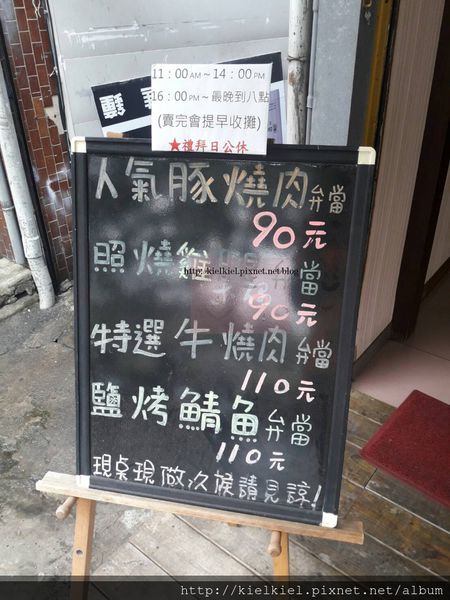 11：00 AM～14：00 PM
16：00 PM～最晚到八點
(賣完會提早收攤)
★禮拜日公休
人氣豚燒肉弁當
90元
照燒雞弁當
http://kielkiel.pixnet.net/blog
90元
特選牛燒肉弁當
110元
鹽烤鯖魚弁當
110元
現桌現做久候請見諒!
http://kielkiel.pixnet.net/album